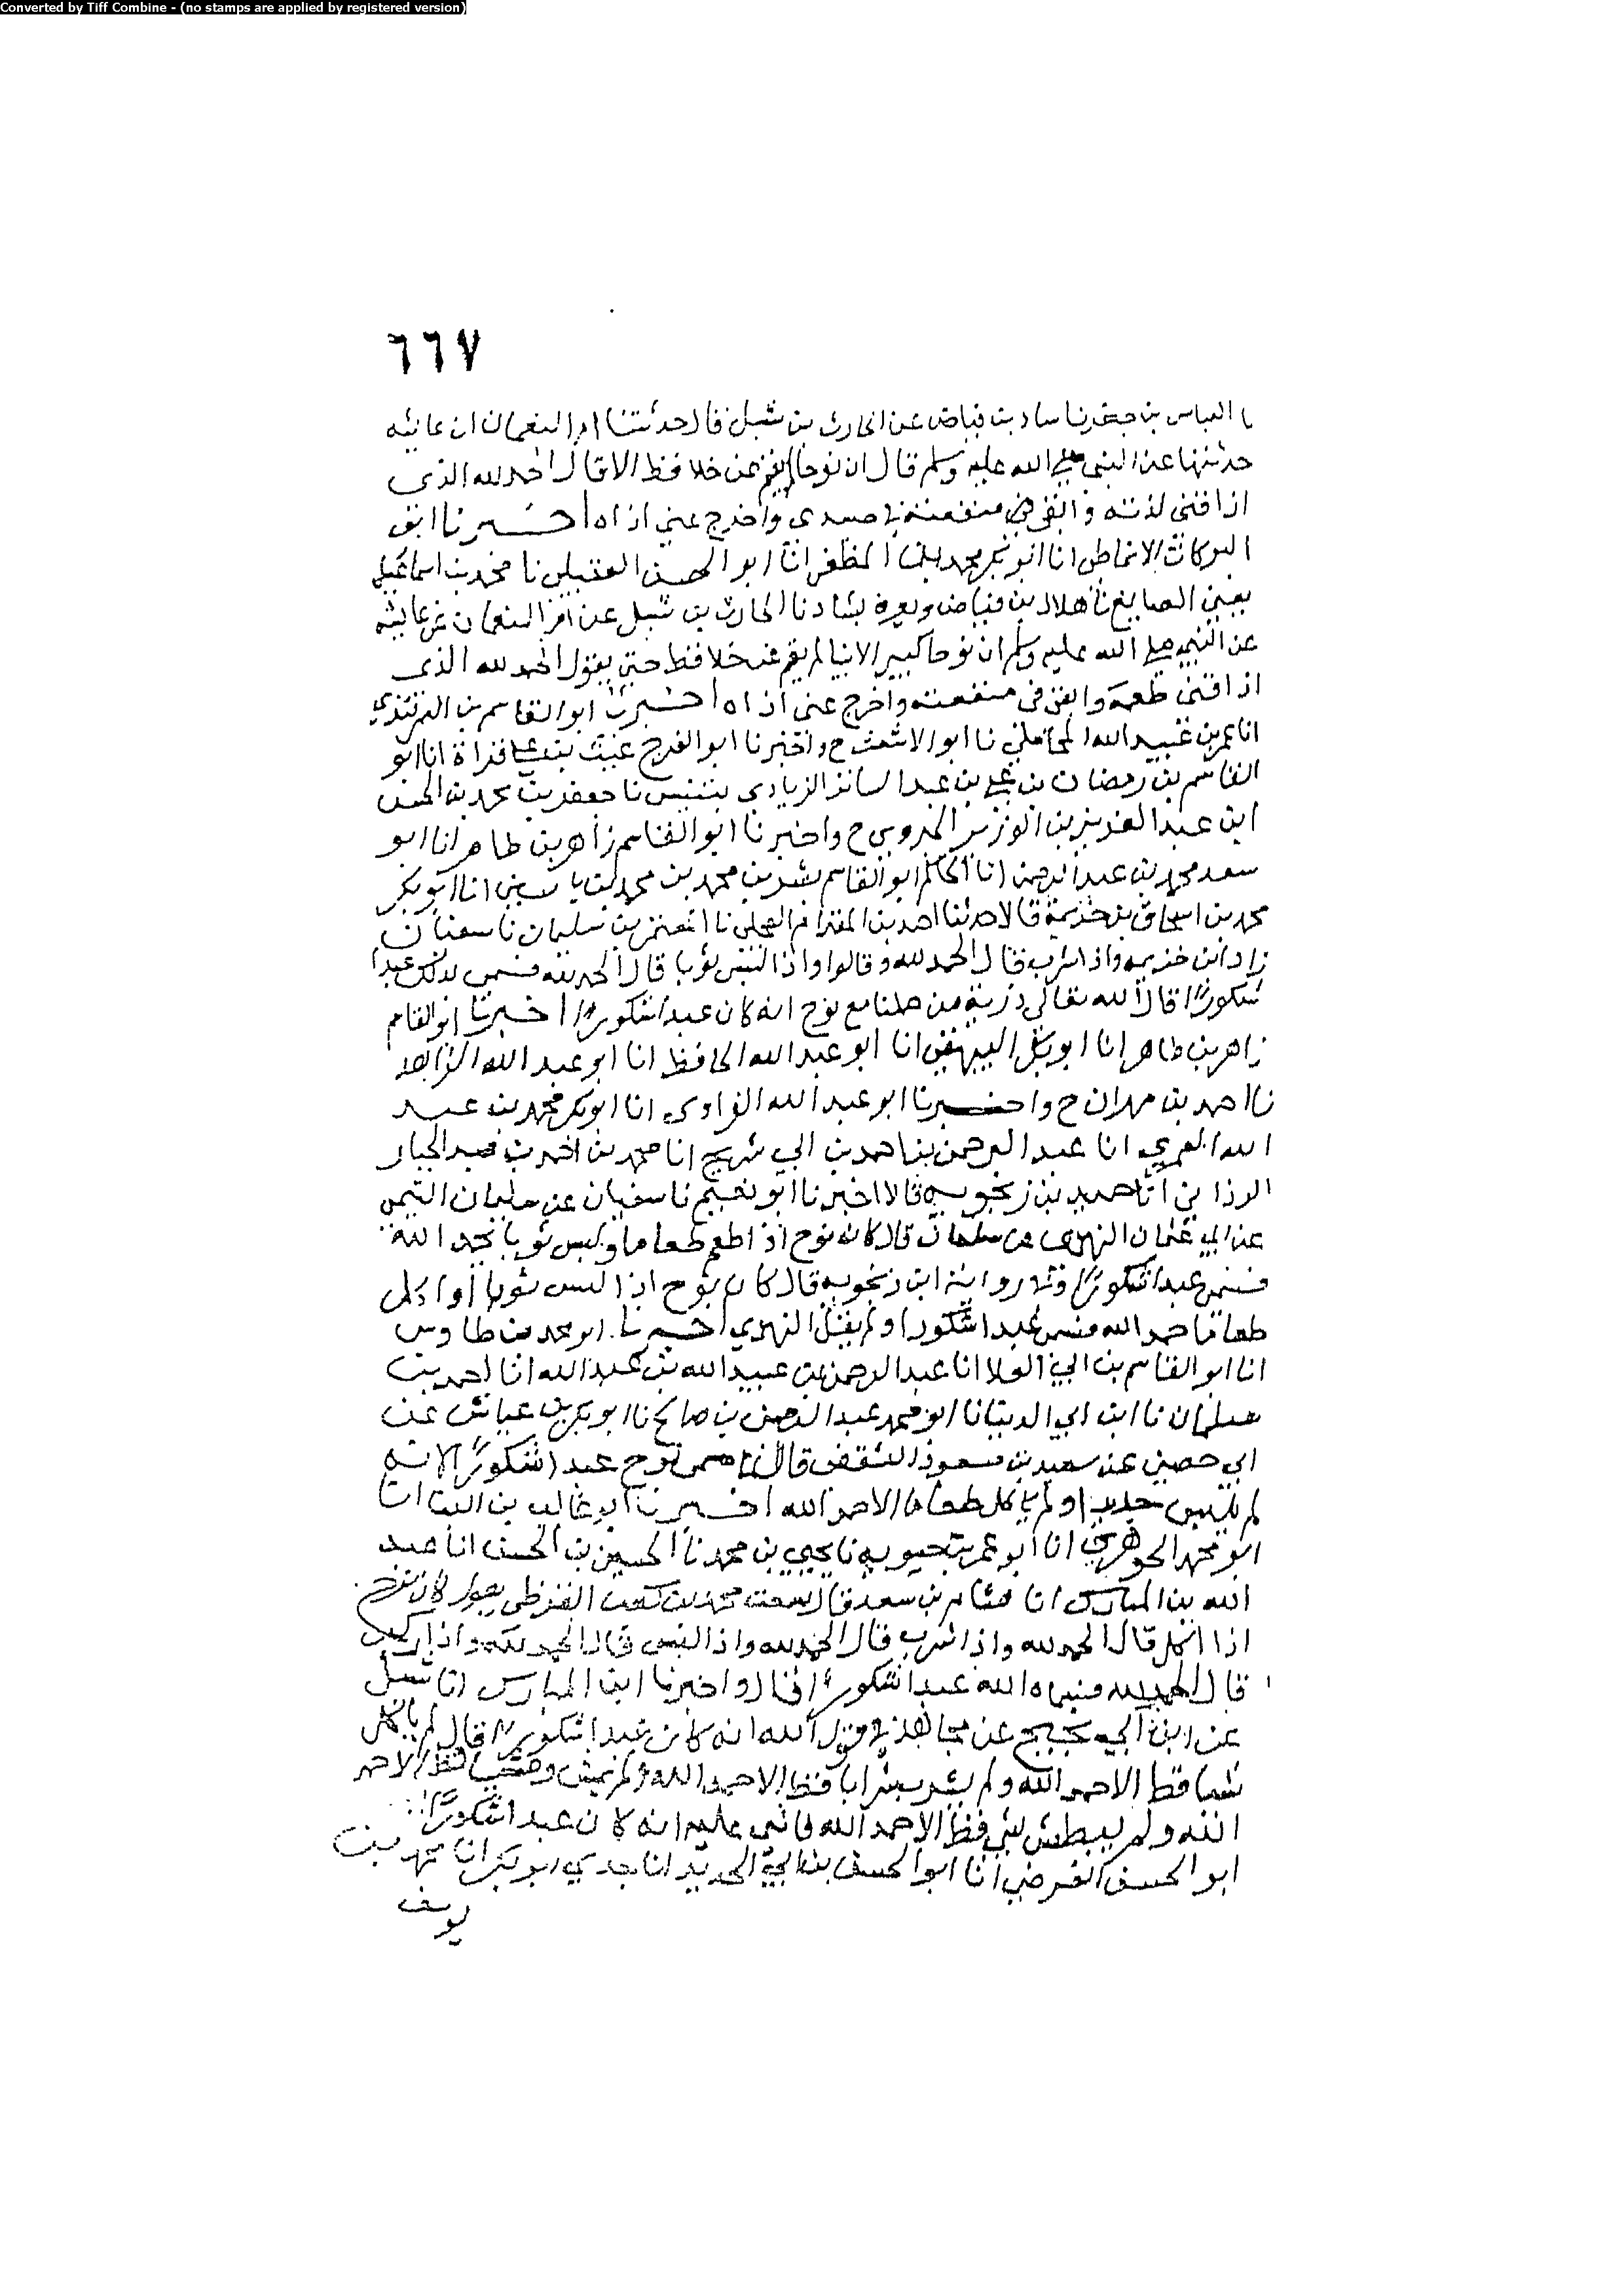 Converted by Tiff Combine - (no stamps are applied by registered version)
٦٦٧
العباس بن جعفر نا شاد بن فياض عن الحارث بن شبل قال حدثتنا ام النعمان ان عائشة
حدثتها عن النبي صلى الله عليه وسلم قال ان نوحا لم يقم عن خلا قط الا قال الحمد لله الذي
اذاقني لذته وابقى في منفعته في جسدي واخرج عني اذاه اخبرنا ابو
البركات الانماطي انا ابو بكر محمد بن المظفر انا ابو الحسن العتيقي نا محمد بن اسماعيل
يعني الصايغ نا هلال بن فياض ويعرف بشاد نا الحارث بن شبل عن ام النعمان عن عايشه
عن النبي صلى الله عليه وسلم ان نوحا كبير الانبيا لم يقم عن خلا قط حتى يقول الحمد لله الذي
اذاقني طعمه وابقى في منفعته واخرج عني اذاه اخبرنا ابو القاسم بن
انا عمر بن عبيد الله نا ابو الاشعث ح واخبرنا ابو الفرج غيث بن علي قراة انا ابو
القاسم بن رمضان بن علي بن عبد الساتر الزيادي بتنيس نا جعفر بن محمد بن الحسن
ابن عبد العزيز بن الوزير الجروي ح واخبرنا ابو القاسم زاهر بن طاهر انا ابو
سعد محمد بن عبد الرحمن انا الحاكم ابو القاسم بشر بن محمد بن محمد بن ياسين انا ابو بكر
محمد بن اسحاق بن خزيمة قالا حدثنا احمد بن المقدام العجلي نا المعتمر بن سليمان نا سفيان
زاد ابن خزيمه واذا شرب قال الحمد لله وقالوا واذا لبس ثوبا قال الحمد لله فسمي لذلك عبدا
شكورا قال الله تعالى ذرية من حملنا مع نوح انه كان عبدا شكورا اخبرنا ابو القاسم
زاهر بن طاهر انا ابو بكر البيهقي انا ابو عبد الله الحافظ انا ابو عبد الله الزاهد
نا احمد بن مهران ح واخبرنا ابو عبد الله الفراوي انا ابو بكر محمد بن عبد
الله العمري انا عبد الرحمن بن احمد بن ابي شريح انا محمد بن احمد بن عبد الجبار
الرذاني انا حميد بن زنجويه قالا اخبرنا ابو نعيم نا سفيان عن سليمان التيمي
عن ابي عثمان النهدي عن سلمان قال كان نوح اذا طعم طعاما ولبس ثوبا حمد الله
فسمي عبدا شكورا وفي رواية ابن زنجويه قال كان نوح اذا لبس ثوبا او اكل
طعاما حمد الله فسمي عبدا شكورا ولم يقل النهدي اخبرنا ابو محمد بن طاوس
انا ابو القاسم بن ابي العلا انا عبد الرحمن بن عبيد الله بن عبد الله انا احمد بن
سلمان نا ابن ابي الدنيا نا ابو محمد عبد الرحمن بن صالح نا ابو بكر بن عياش عن
ابي حصين عن سعيد بن مسعود الثقفي قال انما سمى نوح عبدا شكورا لانه
لم يلبس جديدا ولم ياكل طعاما الا حمد الله اخبرنا ابو غالب بن البنا انا
ابو محمد الجوهري انا ابو عمر بن حيويه نا يحيى بن محمد نا الحسين بن الحسن انا عبد
الله بن المبارك انا هشام بن سعد قال سمعت محمد بن كعب القرظي يقول كان نوح
اذا اكل قال الحمد لله واذا شرب قال الحمد لله واذا لبس قال الحمد لله واذا ركب
قال الحمد لله فسماه الله عبدا شكورا قال واخبرنا ابن المبارك انا شبل
عن ابن ابي نجيح عن مجاهد في قول الله انه كان عبدا شكورا قال لم ياكل
شيا قط الا حمد الله ولم يشرب شرابا قط الا حمد الله ولم يمش قط الا حمد
الله ولم يبطش بشي قط الا حمد الله فاثنى عليه انه كان عبدا شكورا
ابو الحسن الفرضي انا ابو الحسن بن ابي الحديد انا جدي ابو بكر انا محمد بن
يوسف